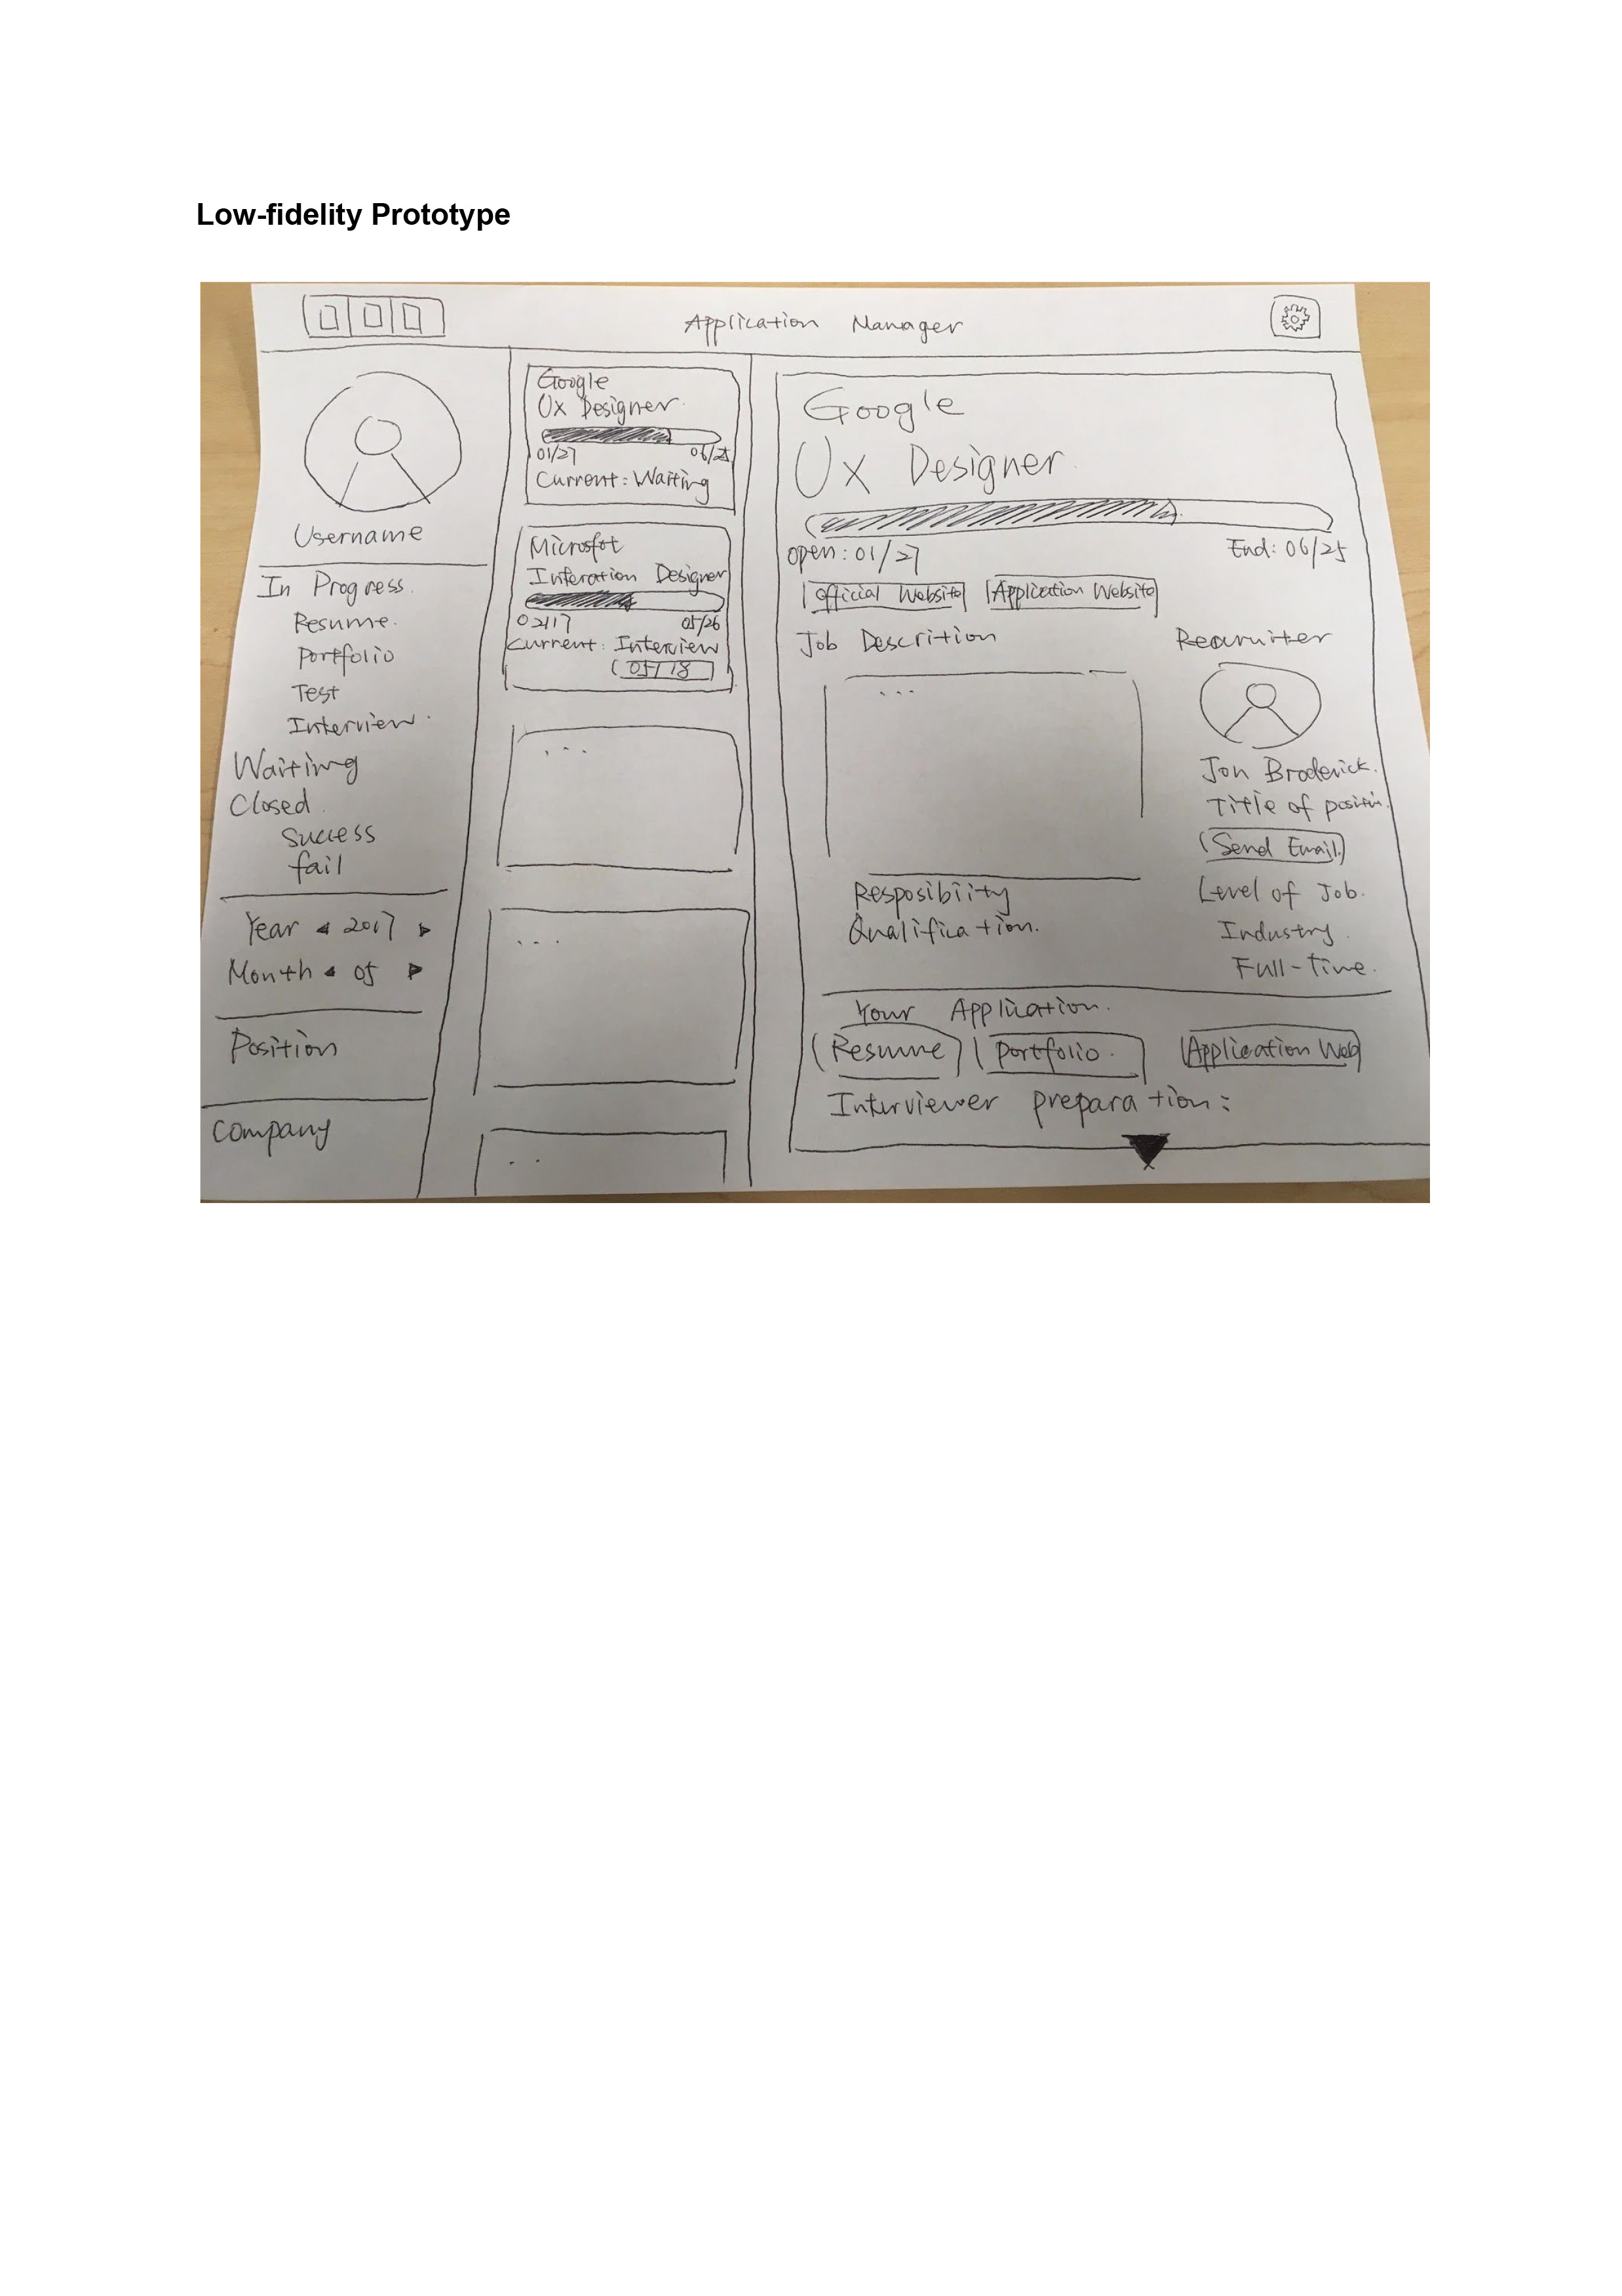 Low-fidelity Prototype
Application Manager
Username
In Progress.
Resume.
Portfolio
Test
Interview.
Waiting
Closed.
Success
fail
Year 2017
Month 05
Position
Company
Google
Ux Designer.
01/27 06/25
Current: Waiting
Microsfot
Interation Designer
02/17 05/26
Current: Interview
05/18
...
...
..
Google
Ux Designer.
open: 01/27 End: 06/25
Official Website Application Website
Job Descrition
...
Resposibiity
Qualification.
Recruiter
Jon Broderick.
Title of positin.
Send Email.
Level of Job.
Industry.
Full-time.
Your Application.
Resume Portfolio. Application Web
Interviewer preparation: